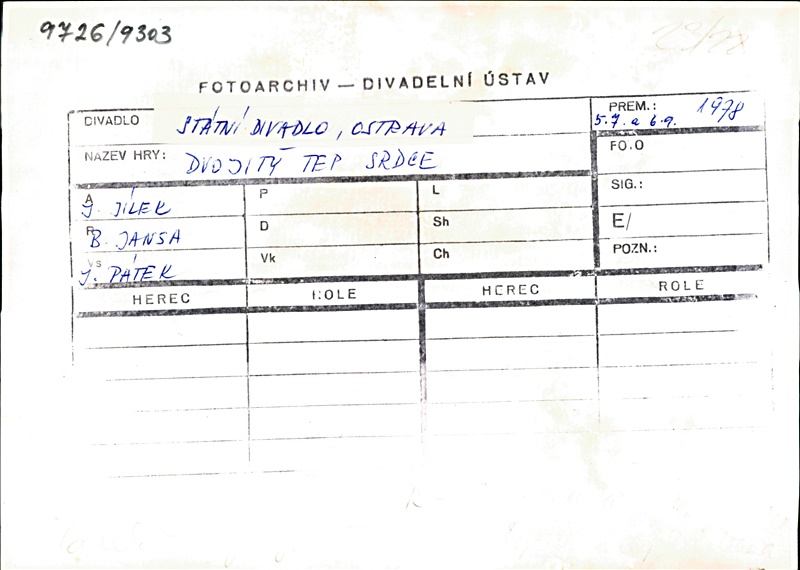 9726/9303
FOTOARCHIV — DIVADELNÍ ÚSTAV
DIVADLO STÁTNÍ DIVADLO, OSTRAVA
PREM.: 1978
5.7. a 6.9.
NÁZEV HRY: DVOJITÝ TEP SRDCE
FO.O
A J. JÍLEK
P
L
SIG.:
R B. JANSA
D
Sh
E/
Vs J. PÁTEK
Vk
Ch
POZN.:
HEREC ROLE HEREC ROLE